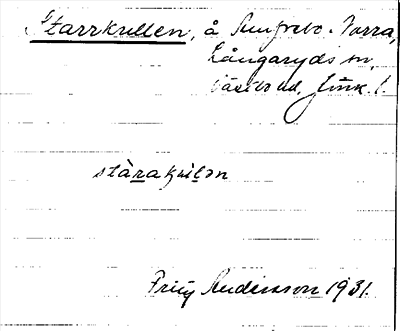 Starrkullen, å Sunnebo. Norra,
Långaryds sn,
Västbo hd. Jönk. l.
stàrakuilən
Fritz Andersson 1931.